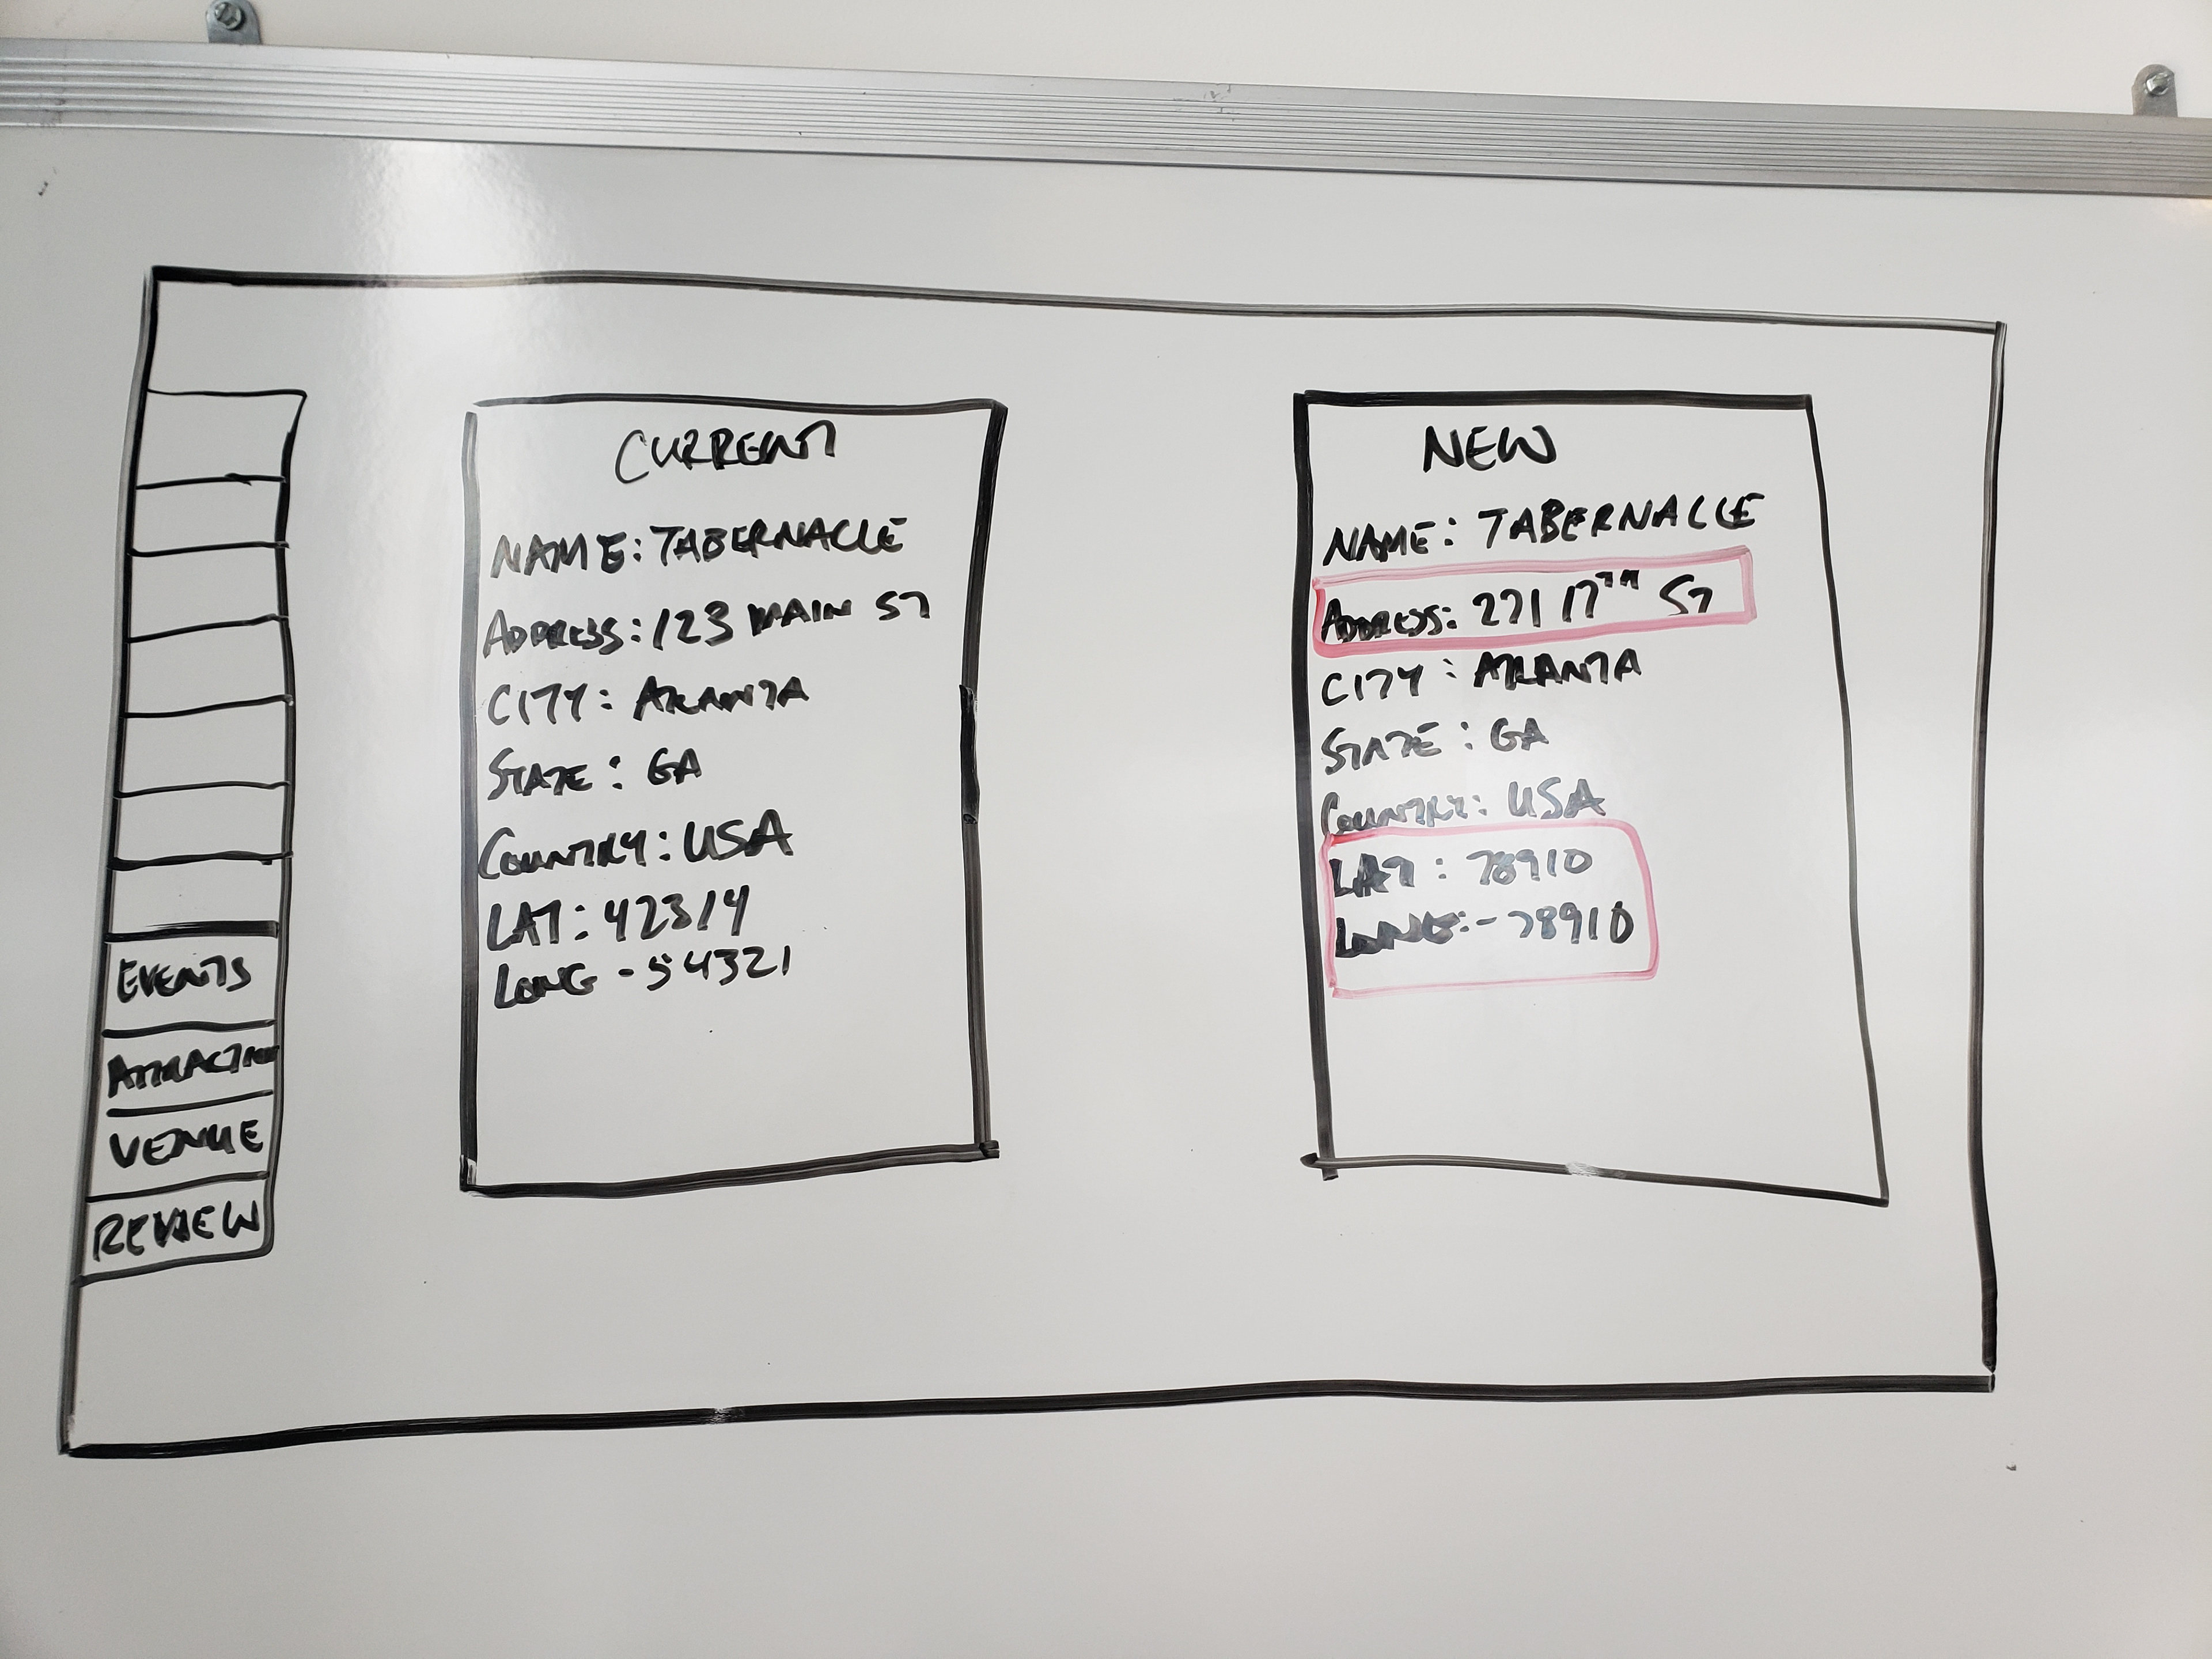 CURRENT
NAME: TABERNACLE
ADDRESS: 123 MAIN ST
CITY: ATLANTA
STATE: GA
COUNTRY: USA
LAT: 42314
LONG -54321
NEW
NAME: TABERNACLE
ADDRESS: 271 17TH ST
CITY: ATLANTA
STATE: GA
COUNTRY: USA
LAT: 78910
LONG: -78910
EVENTS
ATTRACTION
VENUE
REVIEW